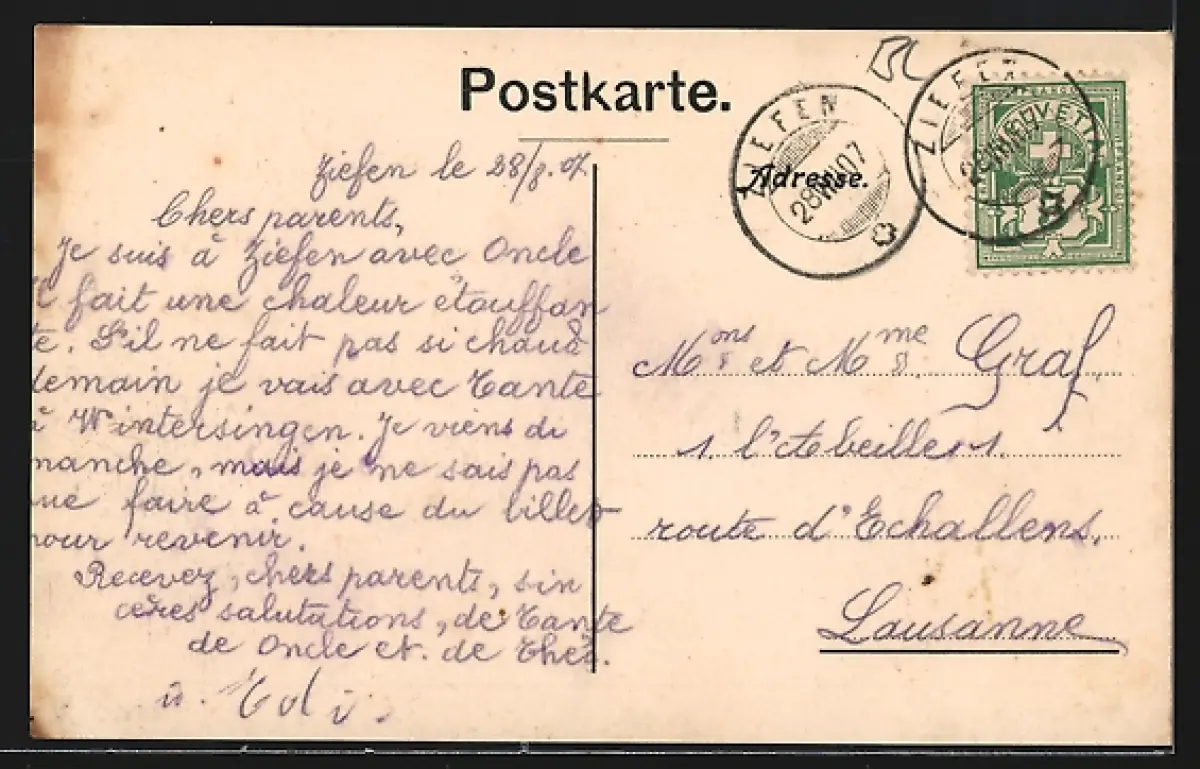 Postkarte.
Ziefen le 28/8. 07
Chers parents,
Je suis à Ziefen avec Oncle
il fait une chaleur étouffan
te. S'il ne fait pas si chaud
demain je vais avec Tante
à Wintersingen. Je viens di
manche, mais je ne sais pas
que faire à cause du billet
pour revenir.
Recevez, chers parents, sin
cères salutations, de Tante
de Oncle et. de
u.
ZIEFEN
28 VIII 07
Adresse.
ZIEFEN
HELVETIA
FRANCO
Mons et Mme Graf.
s. l'Abeille 1.
route d'Echallens.
Lausanne